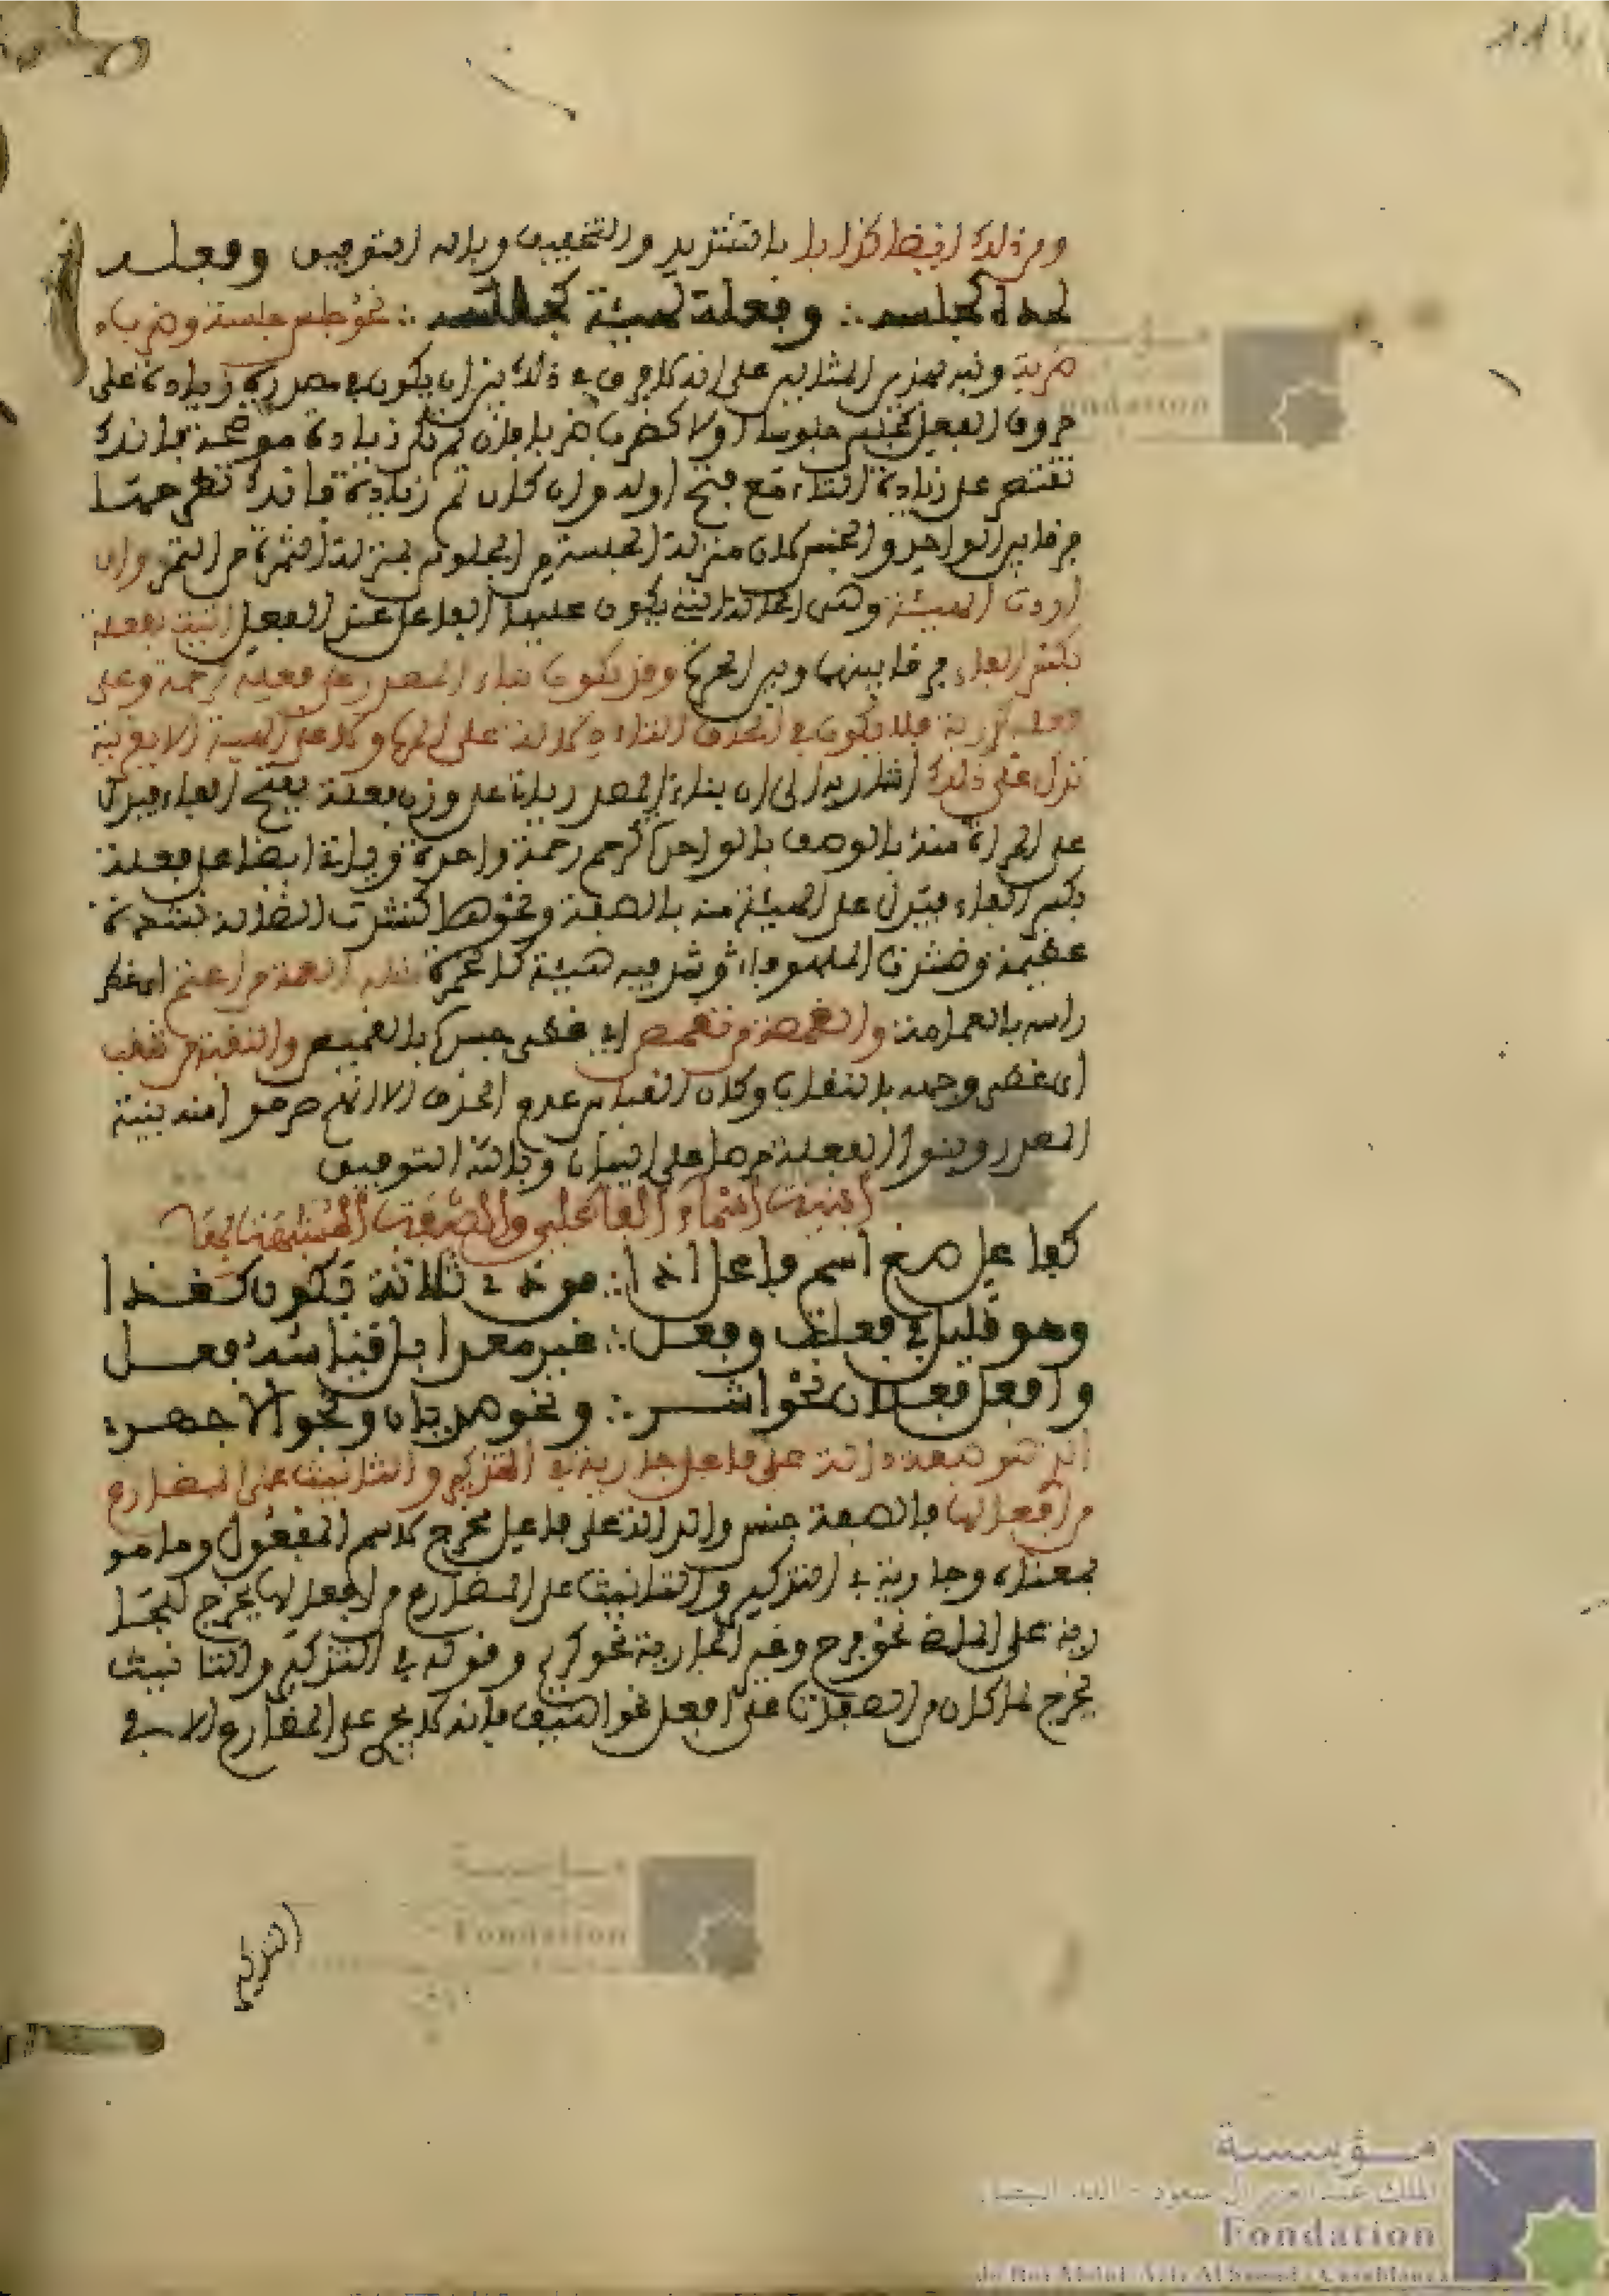 ومن ذلك ايضا كذابا بالتشديد والتخفيف وبالله التوفيق وفعلة
لمرة كجلسة ∴ وفعلة لهيئة كجلسة ∴ نحو جلس جلسة وضرب
ضربة ونبه بهذين المثالين على انه لا فرق في ذلك بين ان يكون في مصدره زيادة على
حروف الفعل كجلس جلوسا اولا كضرب ضربا فان لم تكن زيادة فانك
تقتصر على زيادة التاء مع فتح اوله وان كان ثم زيادة فانك تطرحها
فرقا بين الواحد والجنس كان منزلة الجلسة من الجلوس بمنزلة الثمرة من الثمر وان
اردت الهيئة وهي الحالة التي يكون عليها الفاعل عند الفعل اتيت بفعلة
بكسر الفاء فرقا بينها وبين المرة وقد يكون بناء المصدر على فعلة كرحمة وعلى
فعلة فلا يكون في الحاق التاء دلالة على المرة ولا على الهيئة الا بقرينة
تدل على ذلك اشار به الى ان بناء المصدر ياتي على وزن فعلة بفتح الفاء فيدل
على المراة منه بالوصف بالواحدة كرحم رحمة واحدة وياتي ايضا على فعلة
بكسر الفاء فيدل على الهيئة منه بالصفة ونحوها كنشدت الضالة نشدة
عظيمة هيئة كالخمرة العمة من اعتم اي غطى
راسه بالعمامة والقمصة من تقمص اي غطى جسده بالقميص والنقبة من تنقب
اي غطى وجهه بالنقاب وكان القياس عدم الحذف الا انهم هدموا منه بنية
المصدر وبنوا الفعلة حرصا على البيان وبالله التوفيق
ابنية اسماء الفاعلين والصفات المشبهة بها
كفاعل صغ اسم فاعل اذا ∴ من ذي ثلاثة يكون كغذا
وهو قليل في فعلت وفعل ∴ غير معدا بل قياسه فعل
وافعل فعلان نحو اشر ∴ ونحو صديان ونحو الاجهر
اي هو صفة دالة على فاعل جارية في التذكير والتانيث على المضارع
من افعالها فالصفة جنس والدالة على فاعل مخرج لاسم المفعول وما هو
بمعناه وجارية في التذكير والتانيث على المضارع من افعالها يخرج للجا
رية على الماضي نحو فرح وغير الجارية نحو كريم وقوله في التذكير والتانيث
يخرج لما كان من الصفات على افعل نحو اهيف فانه لا يجري على المضارع الا في
التذكير
مؤسسة
الملك عبد العزيز آل سعود - الدار البيضاء
Fondation
du Roi Abdul-Aziz Al Saoud - Casablanca